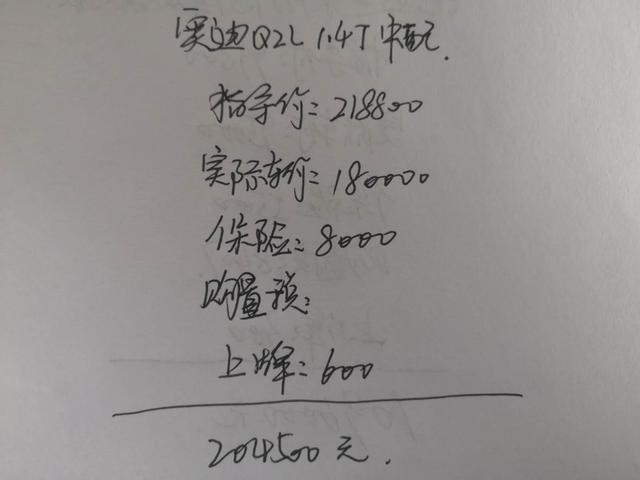 奥迪Q2L 1.4T中配.
指导价:218800
实际车价:180000
保险:8000
购置税:
上牌:600
204500元.